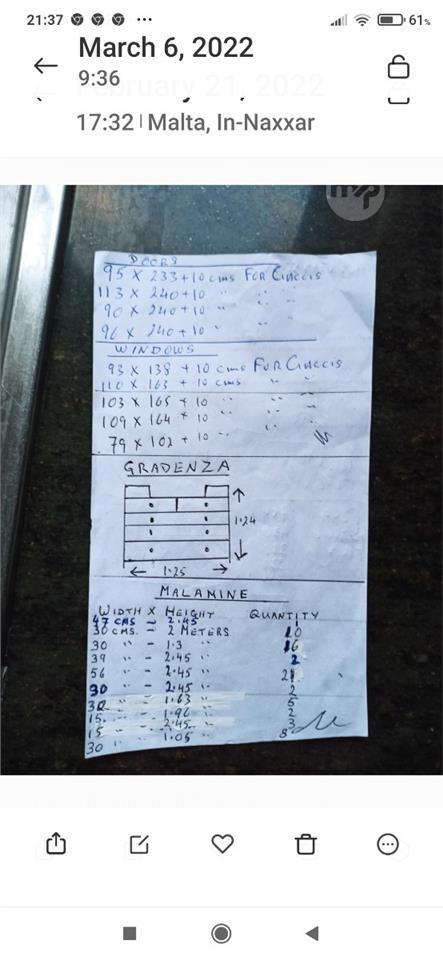 21:37
61%
March 6, 2022
9:36
February 21, 2022
17:32 | Malta, In-Naxxar
DOORS
95 X 233 + 10 cms FOR
113 X 240 + 10 " " "
90 X 240 + 10 " " "
96 X 240 + 10 " " "
WINDOWS
93 X 138 + 10 cms FOR
110 X 163 + 10 cms " "
103 X 165 + 10 " " "
109 X 164 + 10 " " "
79 X 102 + 10 "
GRADENZA
1.24
1.25
MALAMINE
WIDTH X HEIGHT QUANTITY
47 CMS - 2.45 1
30 CMS. - 2 METERS 10
30 " - 1.3 " 16
39 " - 2.45 " 2
56 " - 2.45 " 21
30 " - 2.45 " 2
30 " - 1.63 " 5
15 " - 1.96 " 2
15 " - 2.45 " 3
30 " - 1.05 " 8